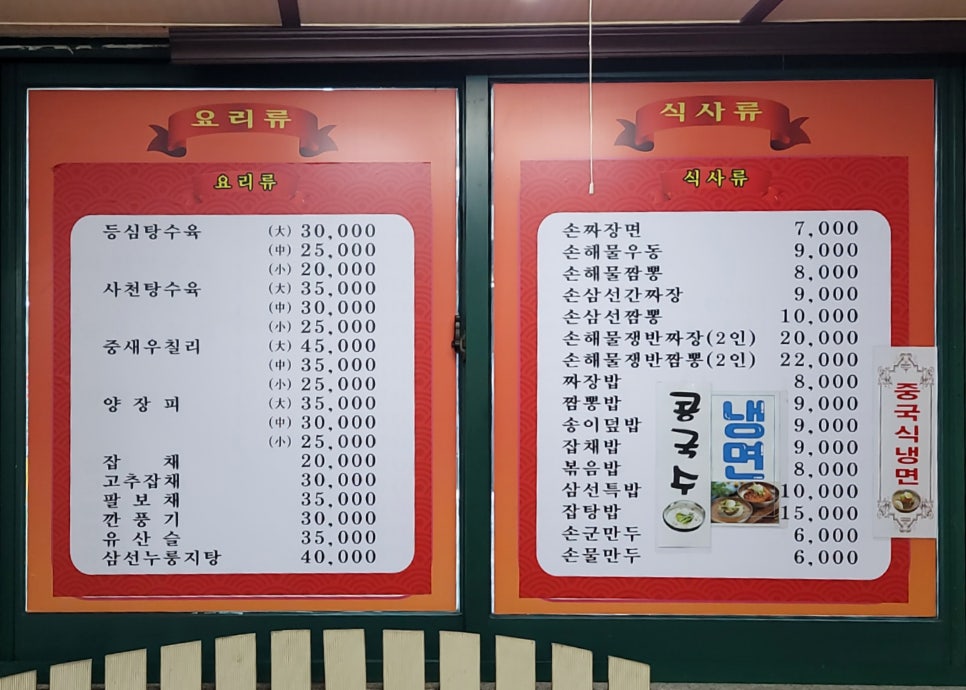 요리류
요리류
등심탕수육 (大) 30,000
(中) 25,000
(小) 20,000
사천탕수육 (大) 35,000
(中) 30,000
(小) 25,000
중새우칠리 (大) 45,000
(中) 35,000
(小) 25,000
양 장 피 (大) 35,000
(中) 30,000
(小) 25,000
잡 채 20,000
고추잡채 30,000
팔 보 채 35,000
깐 풍 기 30,000
유 산 슬 35,000
삼선누룽지탕 40,000
식사류
식사류
손짜장면 7,000
손해물우동 9,000
손해물짬뽕 8,000
손삼선간짜장 9,000
손삼선짬뽕 10,000
손해물쟁반짜장(2인) 20,000
손해물쟁반짬뽕(2인) 22,000
짜장밥 8,000
짬뽕밥 9,000
송이덮밥 9,000
잡채밥 9,000
볶음밥 8,000
삼선특밥 10,000
잡탕밥 15,000
손군만두 6,000
손물만두 6,000
콩국수
냉면
중국식냉면